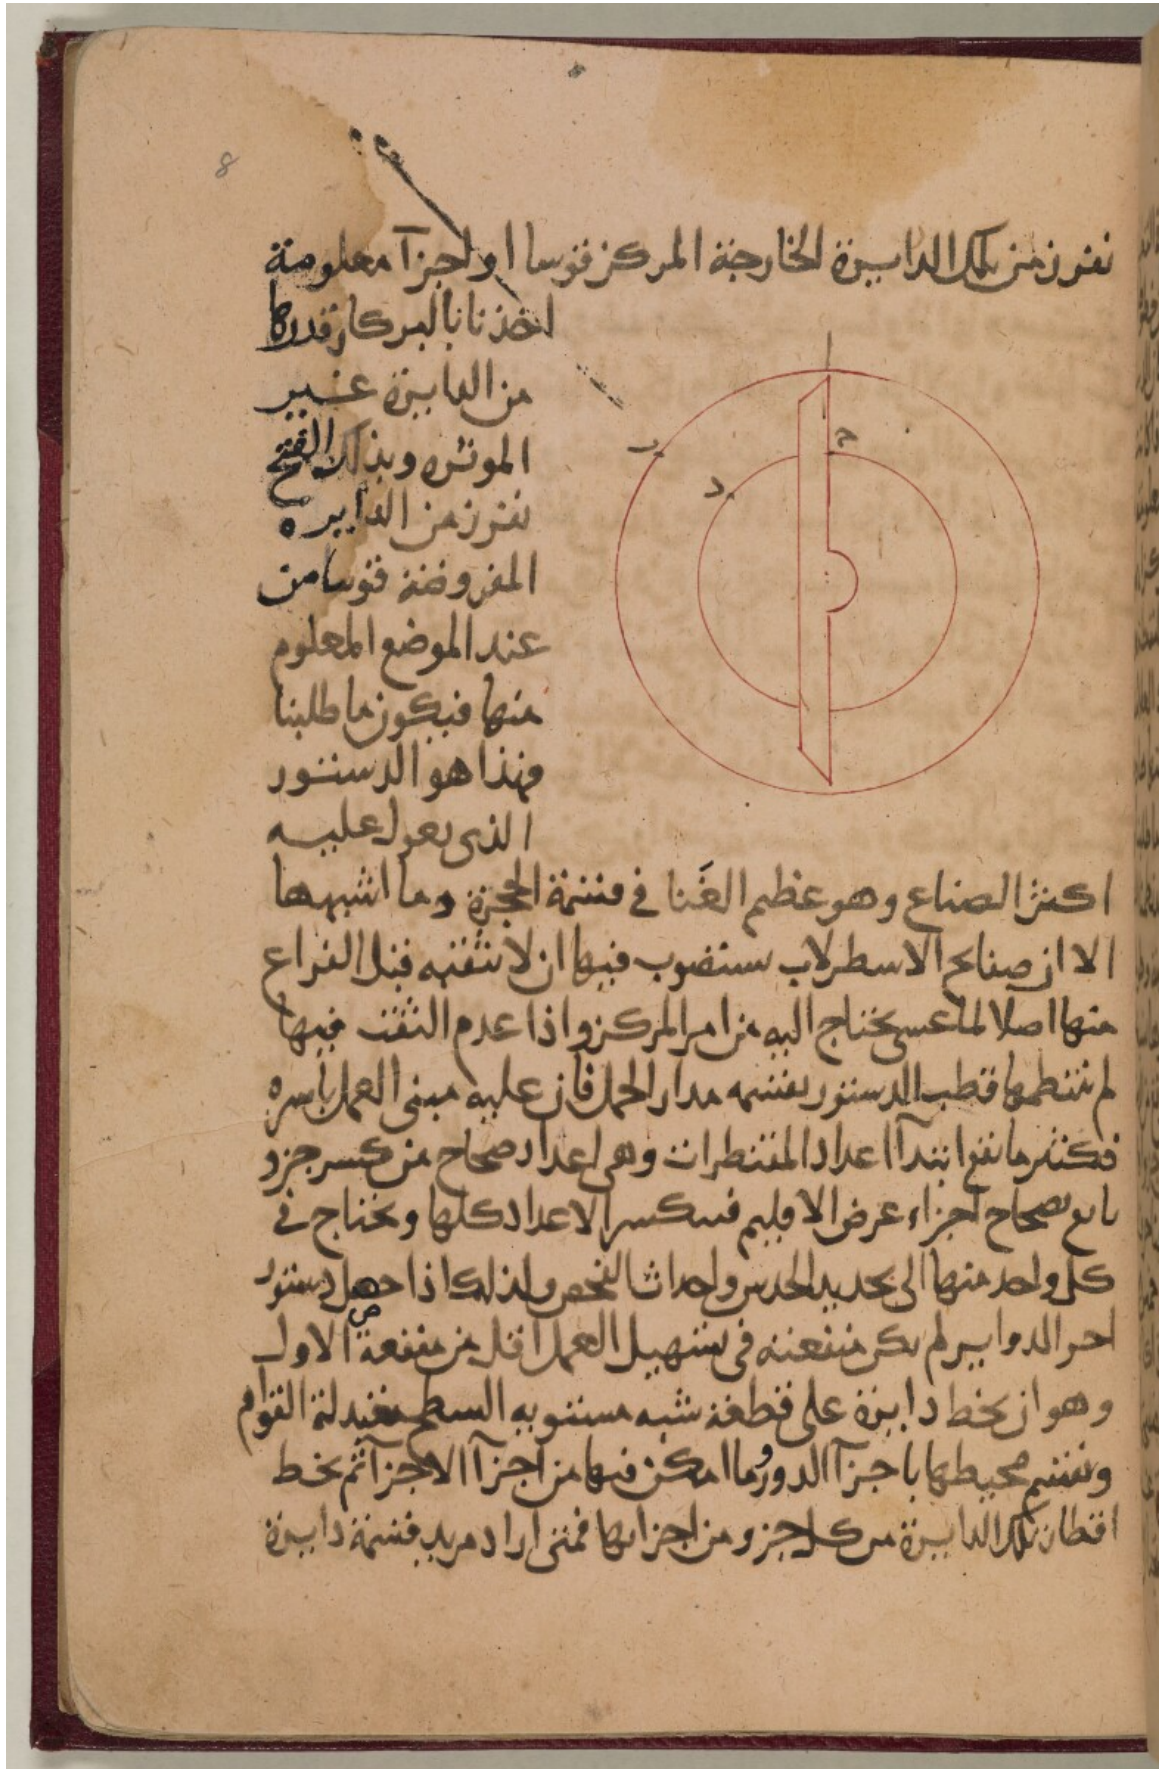 8
نفرز من تلك الدايرة الخارجة المركز قوسا او اجزآ معلومة
اخذنا بالبركار قدرها
من الدايرة غير
الموثره وبذلك الفتح
نفرز من الدايره
المفروضة قوسا من
عند الموضع المعلوم
منها فيكون ما طلبنا
فهذا هو الدستور
الذى يعول عليه
ب
ج
د
اكثر الصناع وهو عظيم الغَنا فى قسمة الحجرة وما اشبهها
الا ان صفايح الاسطرلاب ستصوب فيها ان لا تثقبه قبل الفراغ
منها اصلا لما عسى يحتاج اليه من امر المركز واذا عدم الثقب فيها
لم ينتظمها قطب الدستور بقسمه مدار الحمل فان عليه مبنى العمل باسره
فكثير ما يقع ابتدآ اعداد المقنطرات وهى اعداد صحاح من كسر جزو
تابع لصحاح اجزاء عرض الاقليم فينكسر الاعداد كلها ويحتاج فى
كل واحد منها الى تحديد الحدس واحداث ولذلك اذا حصل دستور
احر الدواير لم يكن منفعته فى تسهيل العمل اقل من منفعة الاول
وهو ان يخط دايرة على قطعة شبه مستويه السطح معتدلة القوام
ونقسم محيطها باجزآ الدور وما امكن فيها من اجزآ الاجزآ ثم نخط
اقطار تلك الدايرة من كل جزو من اجزايها فمتى اراد مريد قسمة دايرة